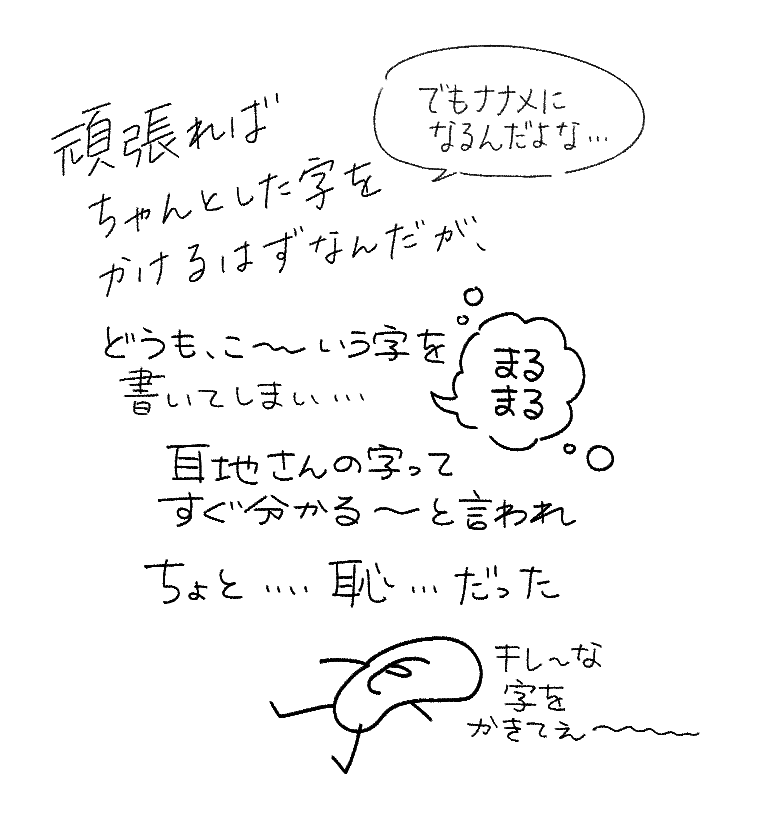 頑張れば
ちゃんとした字を
かけるはずなんだが、
でもナナメに
なるんだよな…
どうも、こ〜〜いう字を
書いてしまい…
まる
まる
耳地さんの字って
すぐ分かる〜と言われ
ちょと‥‥恥…だった
キレ〜な
字を
かきてえ〜〜〜〜